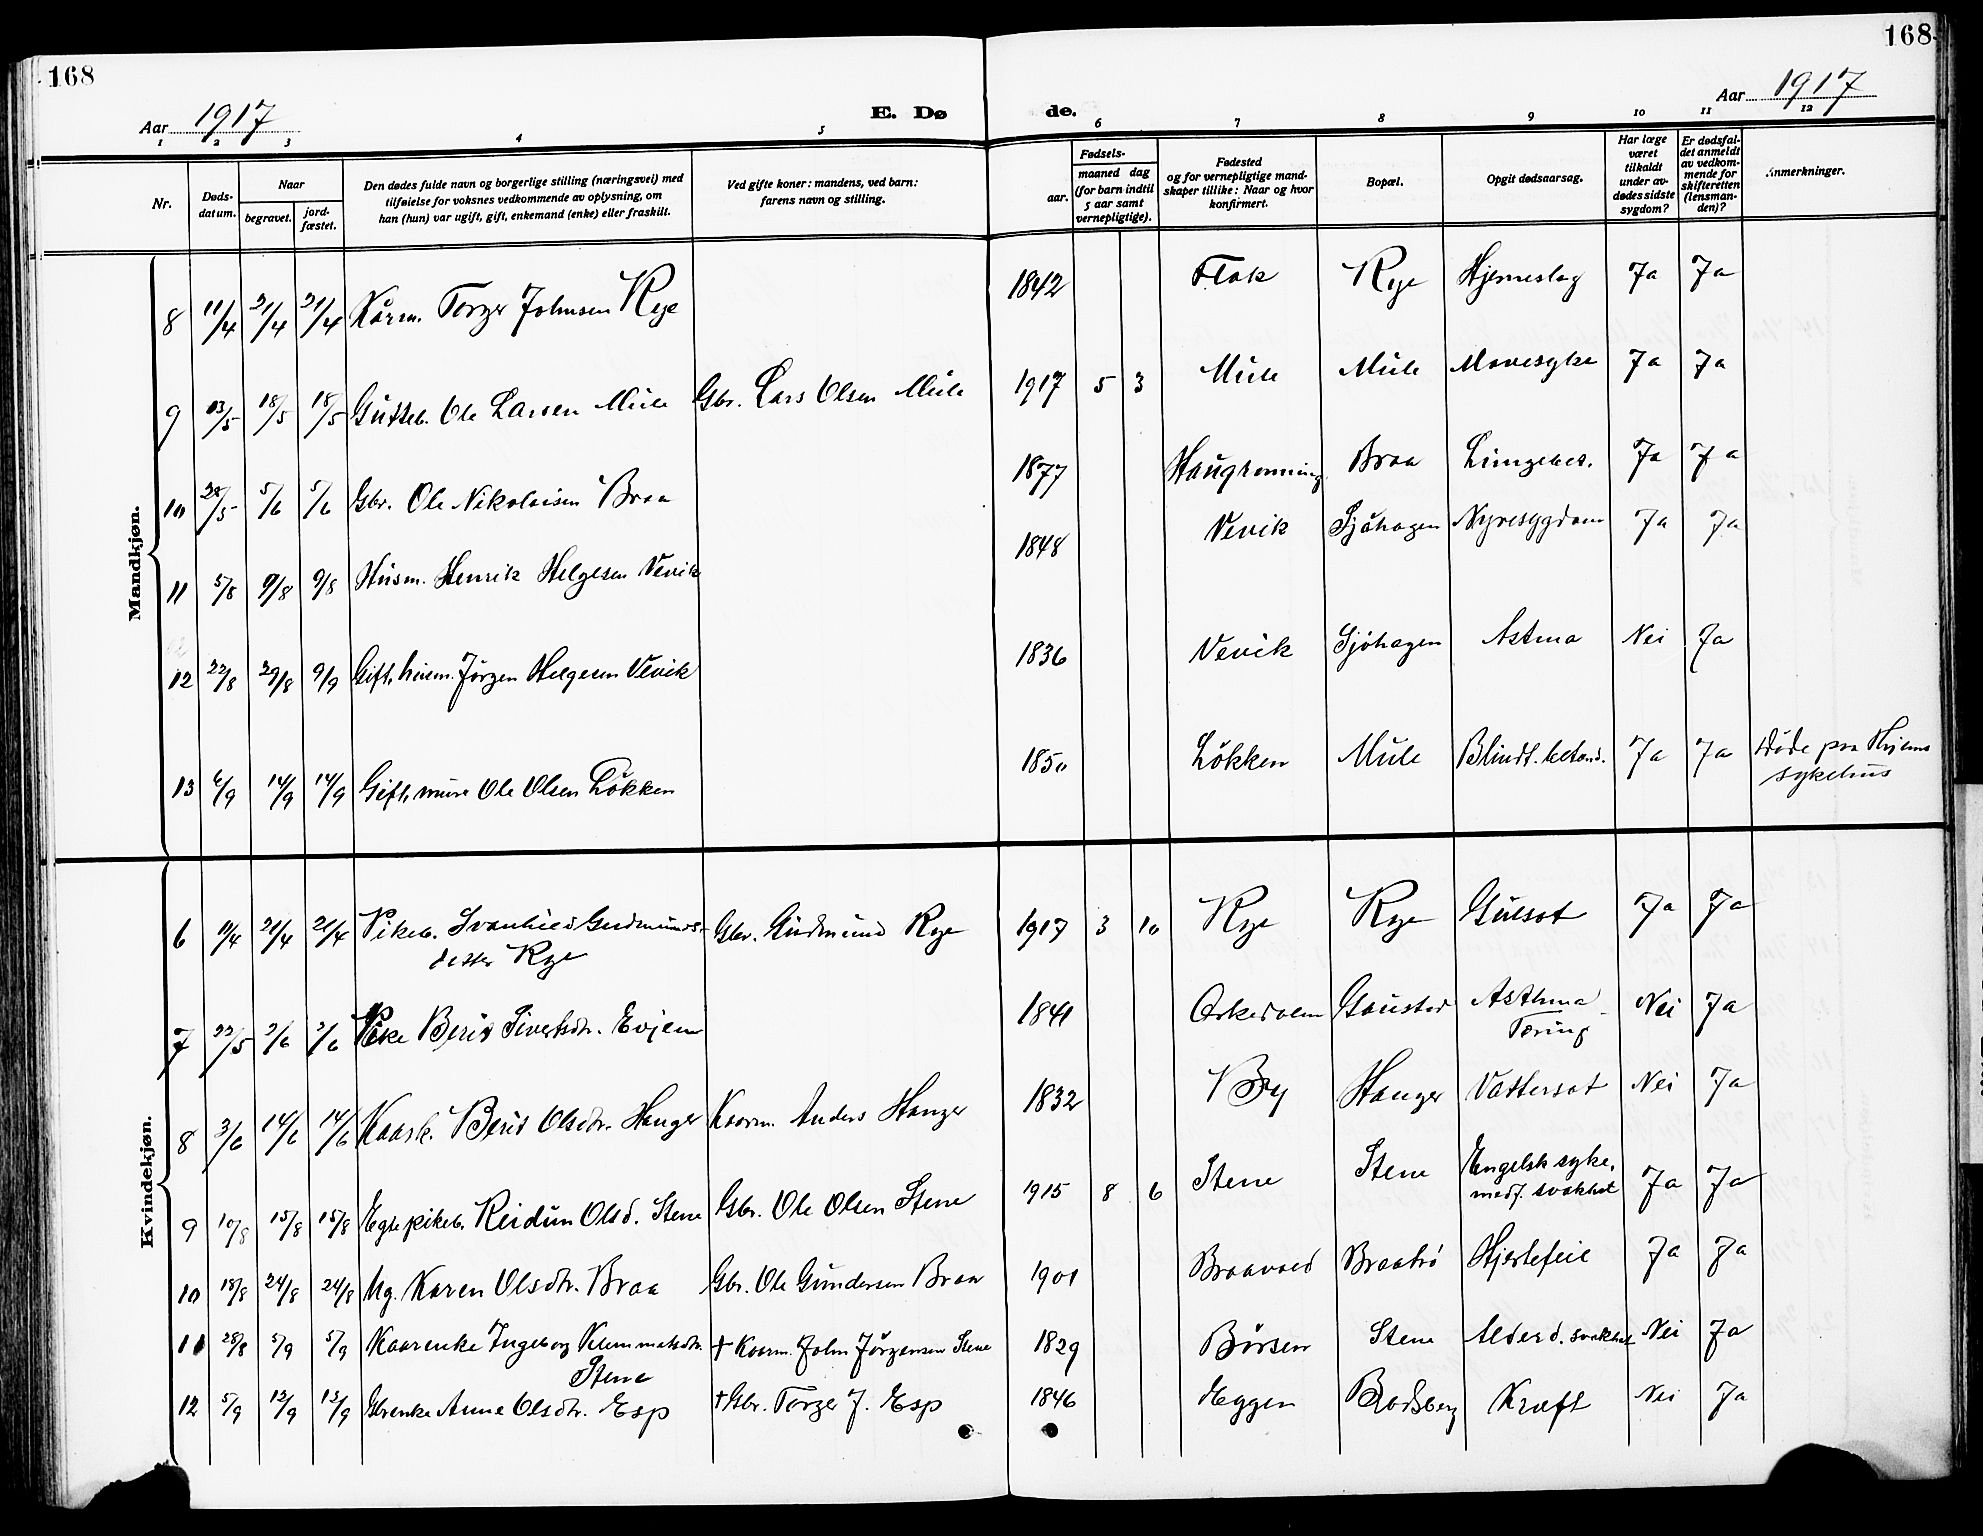 168
168
Aar 1917
E. Dø
de.
Aar 1917
1 2 3 4 5 6 7 8 9 10 11 12
Nr.
Døds-
datum.
Naar
begravet.
jord-
fæstet.
Den dødes fulde navn og borgerlige stilling (næringsvei) med
tilføielse for voksnes vedkommende av oplysning, om
han (hun) var ugift, gift, enkemand (enke) eller fraskilt.
Ved gifte koner: mandens, ved barn:
farens navn og stilling.
Fødsels-
aar.
maaned dag
(for barn indtil
5 aar samt
vernepligtige).
Fødested
og for vernepligtige mand-
skaper tillike: Naar og hvor
konfirmert.
Bopæl.
Opgit dødsaarsag.
Har læge
været
tilkaldt
under av-
dødes sidste
sygdom?
Er dødsfal-
det anmeldt
av vedkom-
mende for
skifteretten
(lensman-
den)?
Anmerkninger.
Mandkjøn.
8 11/4 21/4 21/4 Kårm. Torger Johnsen Rye 1842 Flak Rye Hjerneslag Ja Ja
9 13/5 18/5 18/5 Gutteb. Ole Larsen Mule Gbr. Lars Olsen Mule 1917 5 3 Mule Mule Mavesyke Ja Ja
10 28/5 5/6 5/6 Gbr. Ole Nikolaisen Braa 1877 Haugrønning Braa Lungebet. Ja Ja
11 5/8 9/8 9/8 Husm. Henrik Helgesen Vevik 1848 Vevik Sjöhagen Nyresygdom Ja Ja
12 22/8 29/8 9/9 Gift, husm. Jörgen Helgesen Vevik 1836 Vevik Sjöhagen Astma Nei Ja
13 6/9 14/9 14/9 Gift, mure Ole Olsen Lökken 1850 Lökken Mule Blindt. betænd. Ja Ja Døde paa Hjems
sykehus
Kvindekjøn.
6 11/4 21/4 21/4 Pikeb. Svanhild Gudmunds-
datter Rye Gbr. Gudmund Rye 1917 3 10 Rye Rye Gulsot Ja Ja
7 22/5 2/6 2/6 Pike Berit Sivertsdtr. Evjem 1841 Orkedalen Gaustad Asthma
Tæring Nei Ja
8 3/6 14/6 14/6 Kaark. Berit Olsdtr. Hanger Kaarm. Anders Hanger 1832 By Hanger Vattersot Nei Ja
9 10/8 15/8 15/8 Egte pikeb. Reidun Olsd. Stene Gbr. Ole Olsen Stene 1915 8 6 Stene Stene Engelsk syke,
medf. svakhet Ja Ja
10 18/8 24/8 24/8 Ug. Karen Olsdtr. Braa Gbr. Ole Gundersen Braa 1901 Braavold Braatrø Hjertefeil Ja Ja
11 28/8 5/9 5/9 Kaarenke Ingeborg Klemmetsdtr.
Stene + Kaarm. John Jörgensen Stene 1829 Börsen Stene Alderd. svakhet Nei Ja
12 5/9 13/9 13/9 Gbrenke Anne Olsdtr. Esp + Gbr. Torger J. Esp 1846 Eggen Rodsberg Kræft Nei Ja